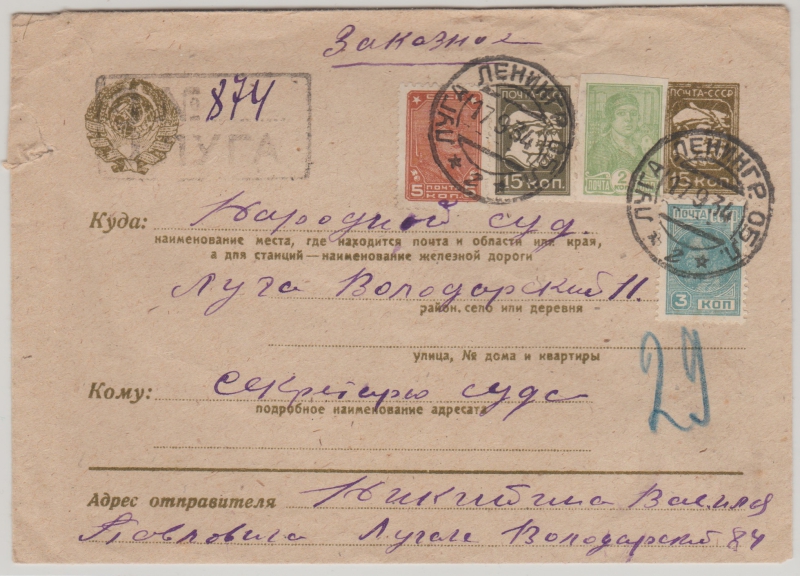 Заказное
874
ЛУГА
5 КОП.
ПОЧТА
15 КОП.
ПОЧТА-СССР
ПОЧТА 2 КОП
ПОЧТА-СССР
15 КОП.
ЛУГА ЛЕНИНГР. ОБЛ.
17 9 34
ЛУГА ЛЕНИНГР. ОБЛ.
17 9 34
2
ПОЧТА
3 КОП
Куда: Народной суд.
наименование места, где находится почта и области или края,
а для станций—наименование железной дороги
Луга Володарский 11.
район, село или деревня
улица, № дома и квартиры
29
Кому: Секретарю суда
подробное наименование адресата
Адрес отправителя Никитина Василия
Павловича Луга Володарский 84